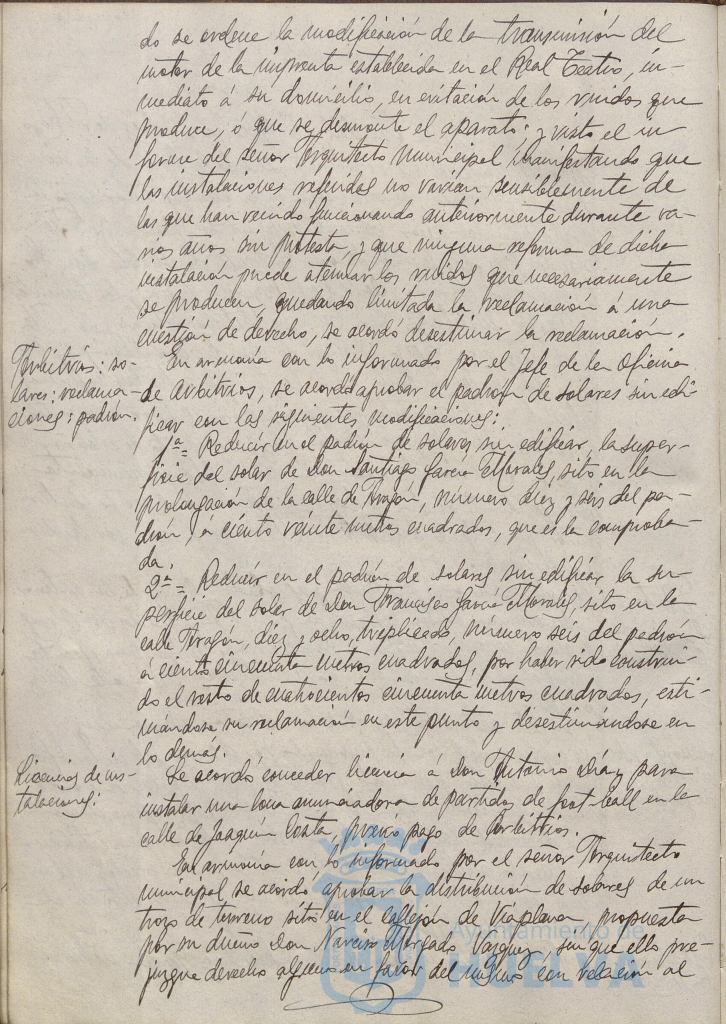 do se ordene la modificación de la transmisión del
motor de la imprenta establecida en el Real Teatro, in-
mediato á su domicilio, en evitación de los ruidos que
produce, ó que se desmonte el aparato: y visto el in
forme del señor Arquitecto municipal manifestando que
las instalaciones referidas no varían sensiblemente de
las que han venido funcionando anteriormente durante va-
rios años sin protesta, y que ninguna reforma de dicha
instalación puede atenuar los ruidos que necesariamente
se producen, quedando limitada la reclamación á una
cuestión de derecho, se acordó desestimar la reclamación.
Arbitrios: so-
lares: reclama-
ciones: padrón.
En armonía con lo informado por el Jefe de la Oficina
de Arbitrios, se acordó aprobar el padrón de solares sin edi-
ficar con las siguientes modificaciones:
1ª = Reducir en el padrón de solares sin edificar, la super-
ficie del solar de Don Santiago García Morales, sito en la
prolongación de la calle de Aragón, número diez y seis del pa-
drón, á ciento veinte metros cuadrados, que es la comproba-
da.
2ª = Reducir en el padrón de solares sin edificar la su-
perficie del solar de Don Francisco García Morales, sito en la
calle Aragón, diez y ocho, triplicado, número seis del padrón
á ciento cincuenta metros cuadrados, por haber sido construi-
do el resto de cuatrocientos cincuenta metros cuadrados, esti-
mándose su reclamación en este punto y desestimándose en
lo demás.
Licencias de ins-
talaciones:
Se acordó conceder licencia á Don Antonio Díaz para
instalar una lona anunciadora de partidos de foot-ball en la
calle de Joaquín Costa, previo pago de arbitrios.
En armonía con lo informado por el señor Arquitecto
municipal se acordó aprobar la distribución de solares de un
trozo de terreno sito en el callejón de Viaplana, propuesta
por su dueño Don Narciso Morgado Vazquez, sin que ello pre-
juzgue derecho alguno en favor del mismo con relación al
Ayuntamiento de
HUELVA